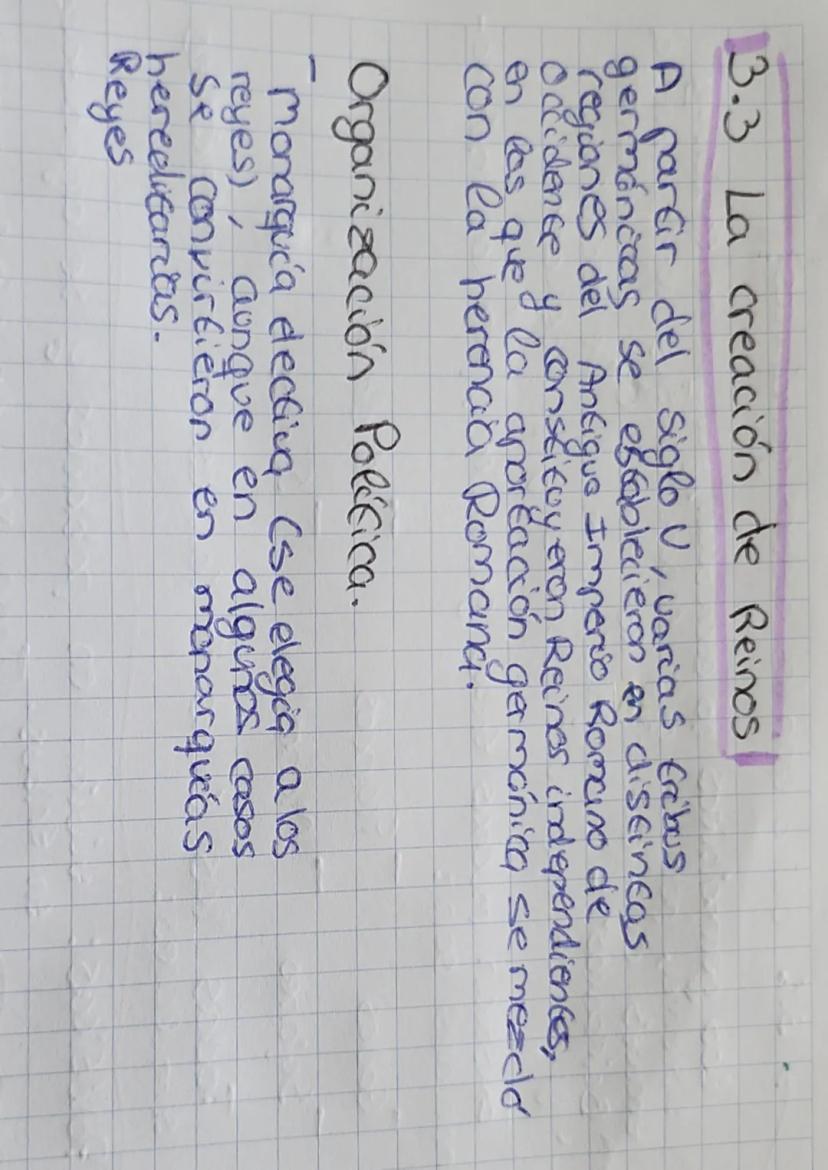 3.3 La creación de Reinos
A partir del siglo V, varias tribus
germánicas se establecieron en distintas
regiones del Antiguo Imperio Romano de
occidente y constituyeron Reinos independientes,
en los que la aportación germánica se mezcló
con la herencia Romana.
Organización Política.
- Monarquía electiva (se elegía a los
reyes), aunque en algunos casos
se convirtieron en monarquías
hereditarias.
Reyes